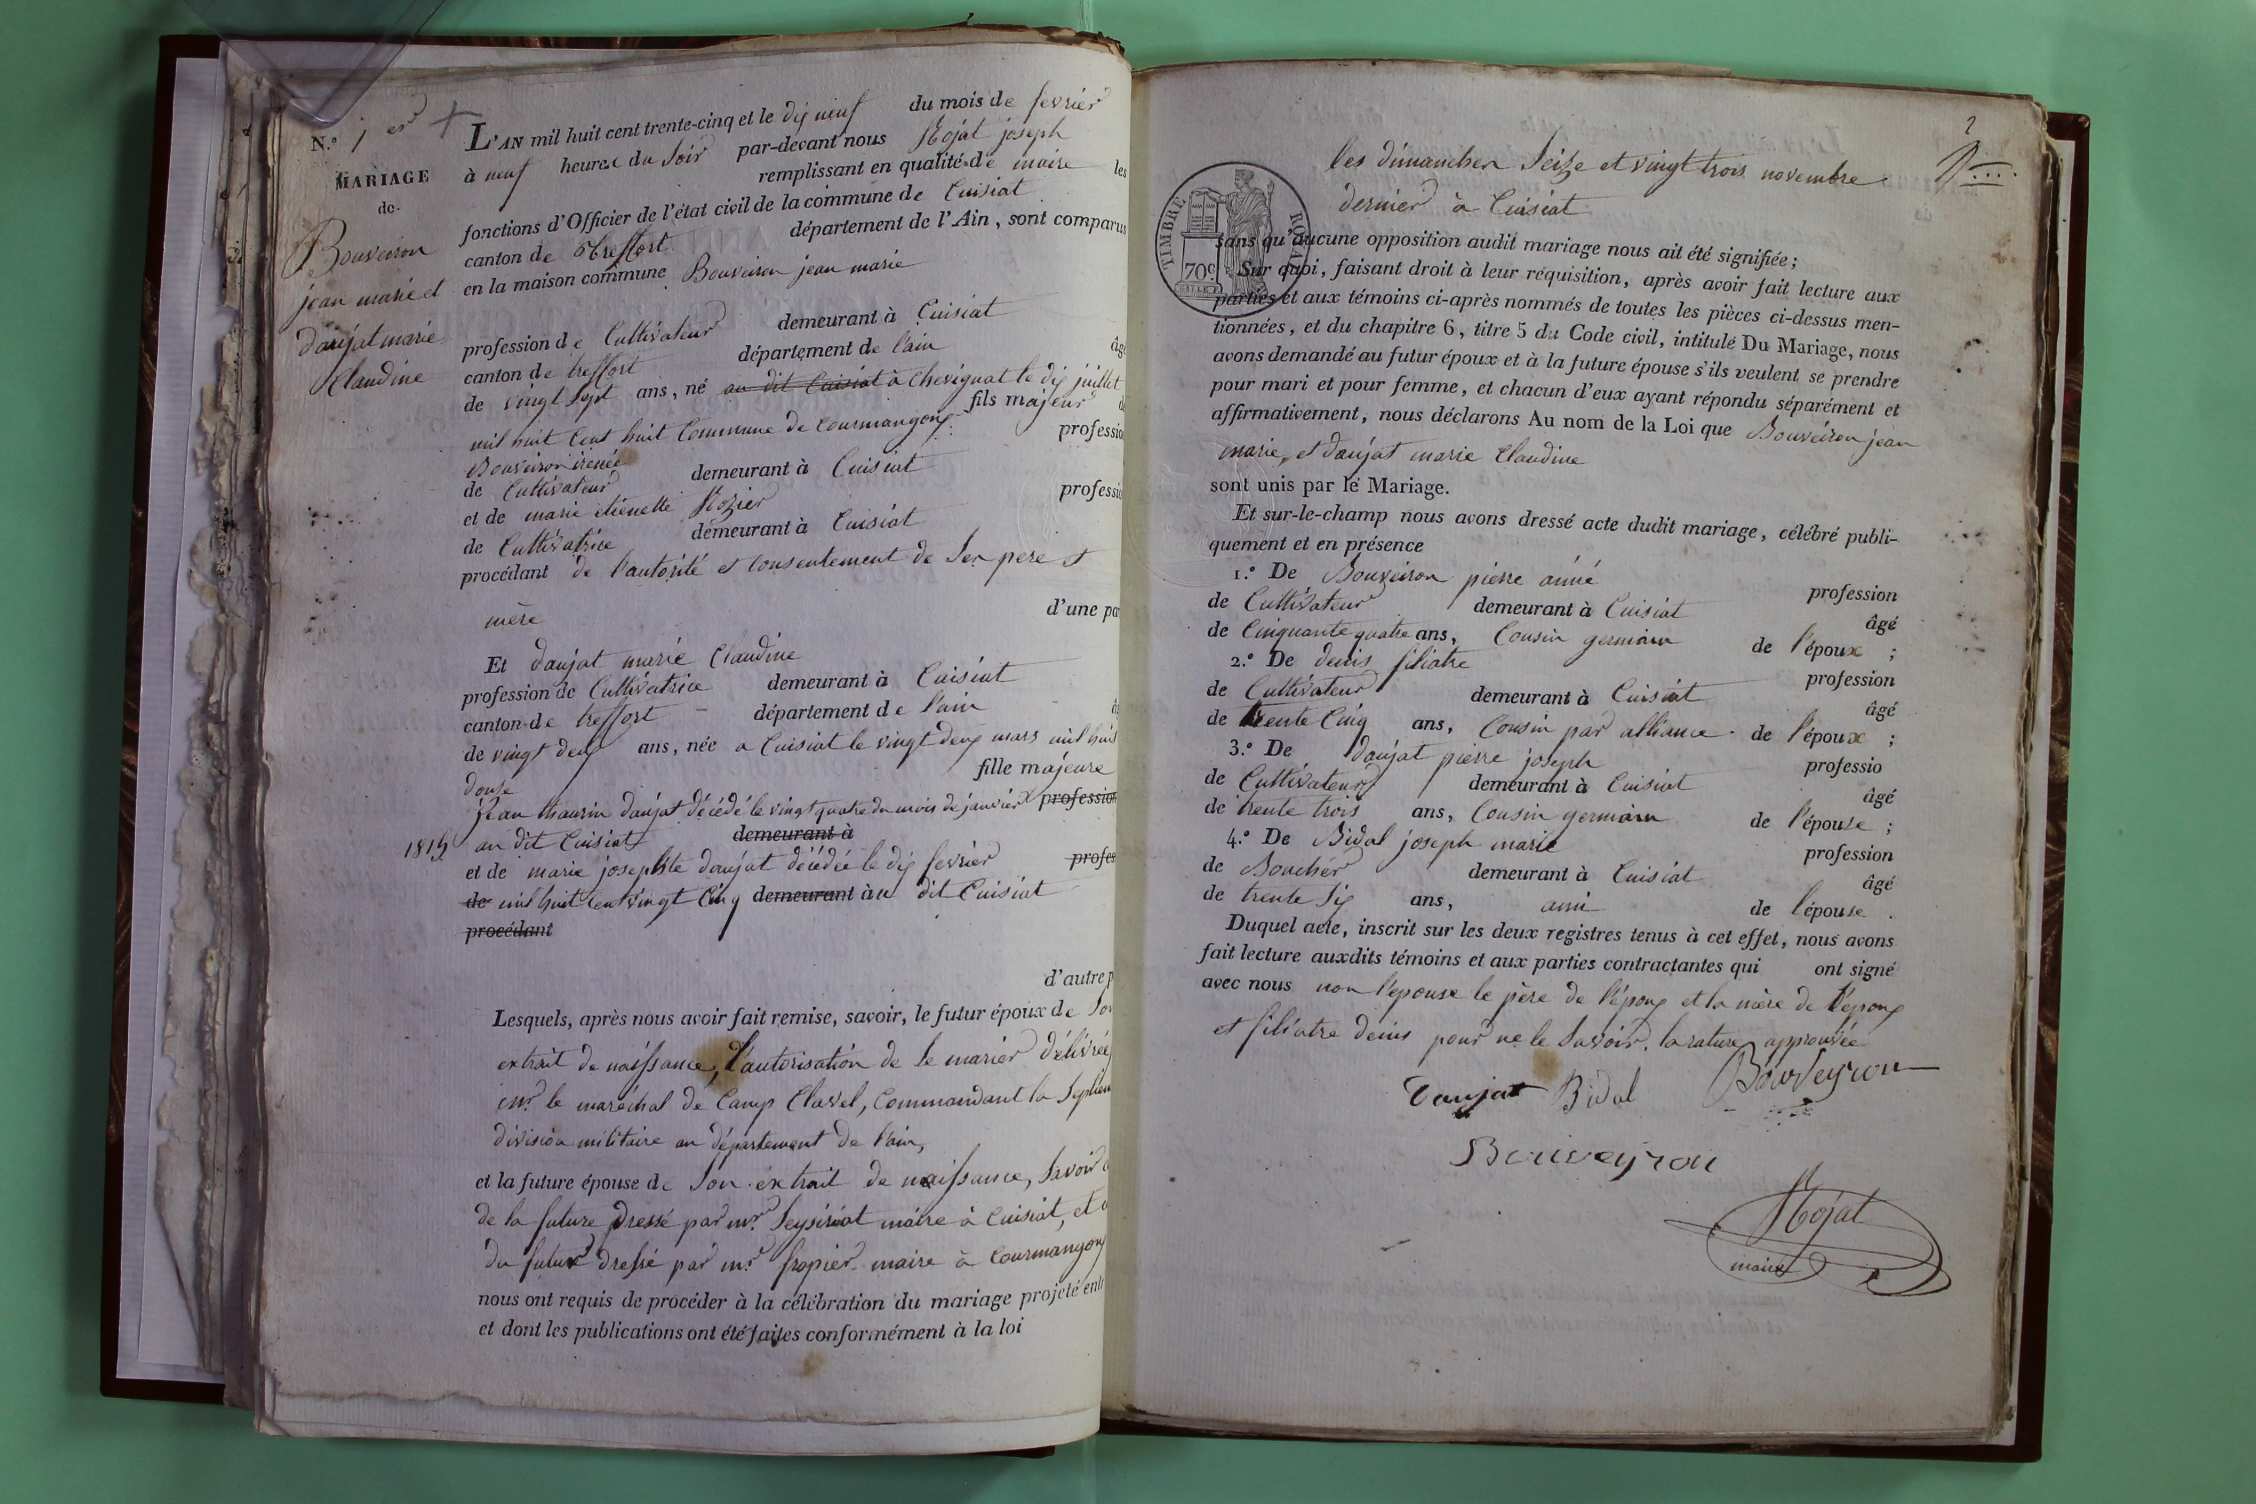 N.º 1er +
MARIAGE
de
Bouveiron
jean marie et
daujat marie
Claudine
L'AN mil huit cent trente-cinq et le dix neuf du mois de fevrier
à neuf heures du Soir par-devant nous Mojat joseph
remplissant en qualité de maire les
fonctions d'Officier de l'état civil de la commune de Cuisiat
canton de treffort département de l'Ain, sont comparus
en la maison commune Bouveiron jean marie
profession de Cultivateur demeurant à Cuisiat
canton de treffort département de l'ain âgé
de vingt Sept ans, né au dit Cuisiat à Chevignat le dix juillet
mil huit Cent huit Commune de Courmangoux fils majeur de
Bouveiron irénée profession
de Cultivateur demeurant à Cuisiat
et de marie etienette profession
de Cultivatrice demeurant à Cuisiat
procédant de l'autorité et consentement de Ses pere et
mère d'une par
Et daujat marie Claudine
profession de Cultivatrice demeurant à Cuisiat
canton de treffort département de l'ain
de vingt deux ans, née a Cuisiat le vingt deux mars mil huit
douse fille majeure
jean maurin daujat décédé le vingt quatre du mois de janvier profession
1815 au dit Cuisiat demeurant à
et de marie josephte daujat décédée le dix fevrier profes
de mil huit Cent vingt Cinq demeurant à au dit Cuisiat
procédant
d'autre p
Lesquels, après nous avoir fait remise, savoir, le futur époux de Son
extrait de naissance, l'autorisation de Se marier délivrée
le maréchal de Camp Clavel, Commandant la Septieme
division militaire au département de l'ain,
et la future épouse de Son extrait de naissance, Savoir
de la future dressé par mr. Seysiriat maire à Cuisiat, et
du futur dressé par mr. fropier maire à Courmangoux
nous ont requis de procéder à la célébration du mariage projeté entre
et dont les publications ont été faites conformément à la loi
2
les dimanches Seize et vingt trois novembre
dernier à Cuisiat
TIMBRE ROYAL
70c
sans qu'aucune opposition audit mariage nous ait été signifiée;
Sur quoi, faisant droit à leur réquisition, après avoir fait lecture aux
parties et aux témoins ci-après nommés de toutes les pièces ci-dessus men-
tionnées, et du chapitre 6, titre 5 du Code civil, intitulé Du Mariage, nous
avons demandé au futur époux et à la future épouse s'ils veulent se prendre
pour mari et pour femme, et chacun d'eux ayant répondu séparément et
affirmativement, nous déclarons Au nom de la Loi que Bouveiron jean
marie, et daujat marie Claudine
sont unis par le Mariage.
Et sur-le-champ nous avons dressé acte dudit mariage, célébré publi-
quement et en présence
1.º De Bouveiron pierre ainé profession
de Cultivateur demeurant à Cuisiat âgé
de Cinquante quatre ans, Cousin germain de l'époux ;
2.º De denis filiatre profession
de Cultivateur demeurant à Cuisiat âgé
de trente Cinq ans, Cousin par alliance de l'époux ;
3.º De daujat pierre joseph professio
de Cultivateur demeurant à Cuisiat âgé
de trente trois ans, Cousin germain de l'épouse ;
4.º De Bidal joseph marie profession
de Boucher demeurant à Cuisiat âgé
de trente Six ans, ami de l'épouse .
Duquel acte, inscrit sur les deux registres tenus à cet effet, nous avons
fait lecture auxdits témoins et aux parties contractantes qui ont signé
avec nous non l'epouse le père de l'époux et la mère de l'epoux
et filiatre denis pour ne le Savoir. la rature approuvée
Daujat Bidal Bouveyron
Bouveyron
Mojat
maire